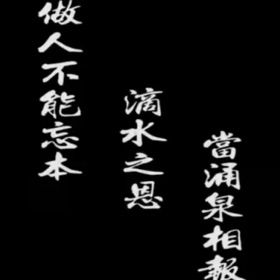 做人不能忘本
滴水之恩
當涌泉相報